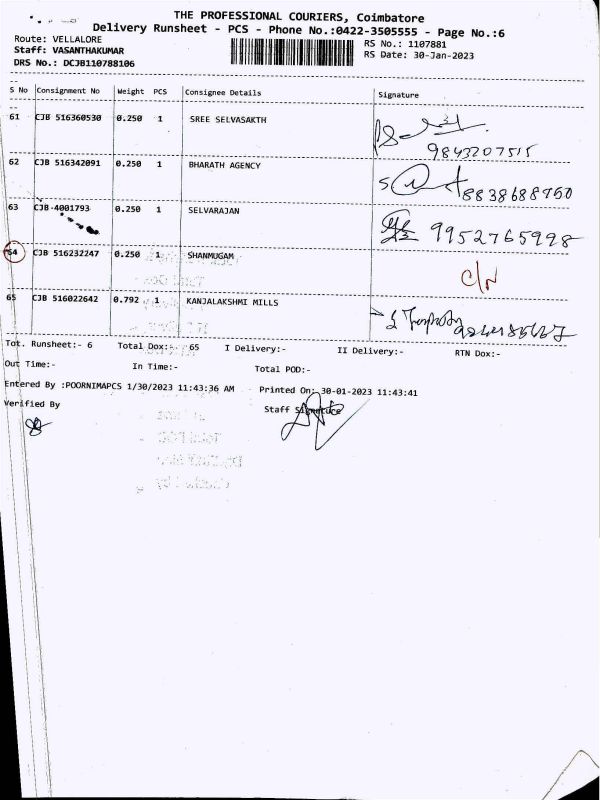 THE PROFESSIONAL COURIERS, Coimbatore
Delivery Runsheet - PCS - Phone No.:0422-3505555 - Page No.:6
Route: VELLALORE RS No.: 1107881
Staff: VASANTHAKUMAR RS Date: 30-Jan-2023
DRS No.: DCJB110788106
S No Consignment No Weight PCS Consignee Details Signature
61 CJB 516360530 0.250 1 SREE SELVASAKTH
9843207515
62 CJB 516342091 0.250 1 BHARATH AGENCY
8838688760
63 CJB-4001793 0.250 1 SELVARAJAN
9952765998
64 CJB 516232247 0.250 1 SHANMUGAM
C/N
65 CJB 516022642 0.792 1 KANJALAKSHMI MILLS
Tot. Runsheet:- 6 Total Dox:- 65 I Delivery:- II Delivery:- RTN Dox:-
Out Time:- In Time:- Total POD:-
Entered By :POORNIMAPCS 1/30/2023 11:43:36 AM Printed On: 30-01-2023 11:43:41
Verified By Staff Signature